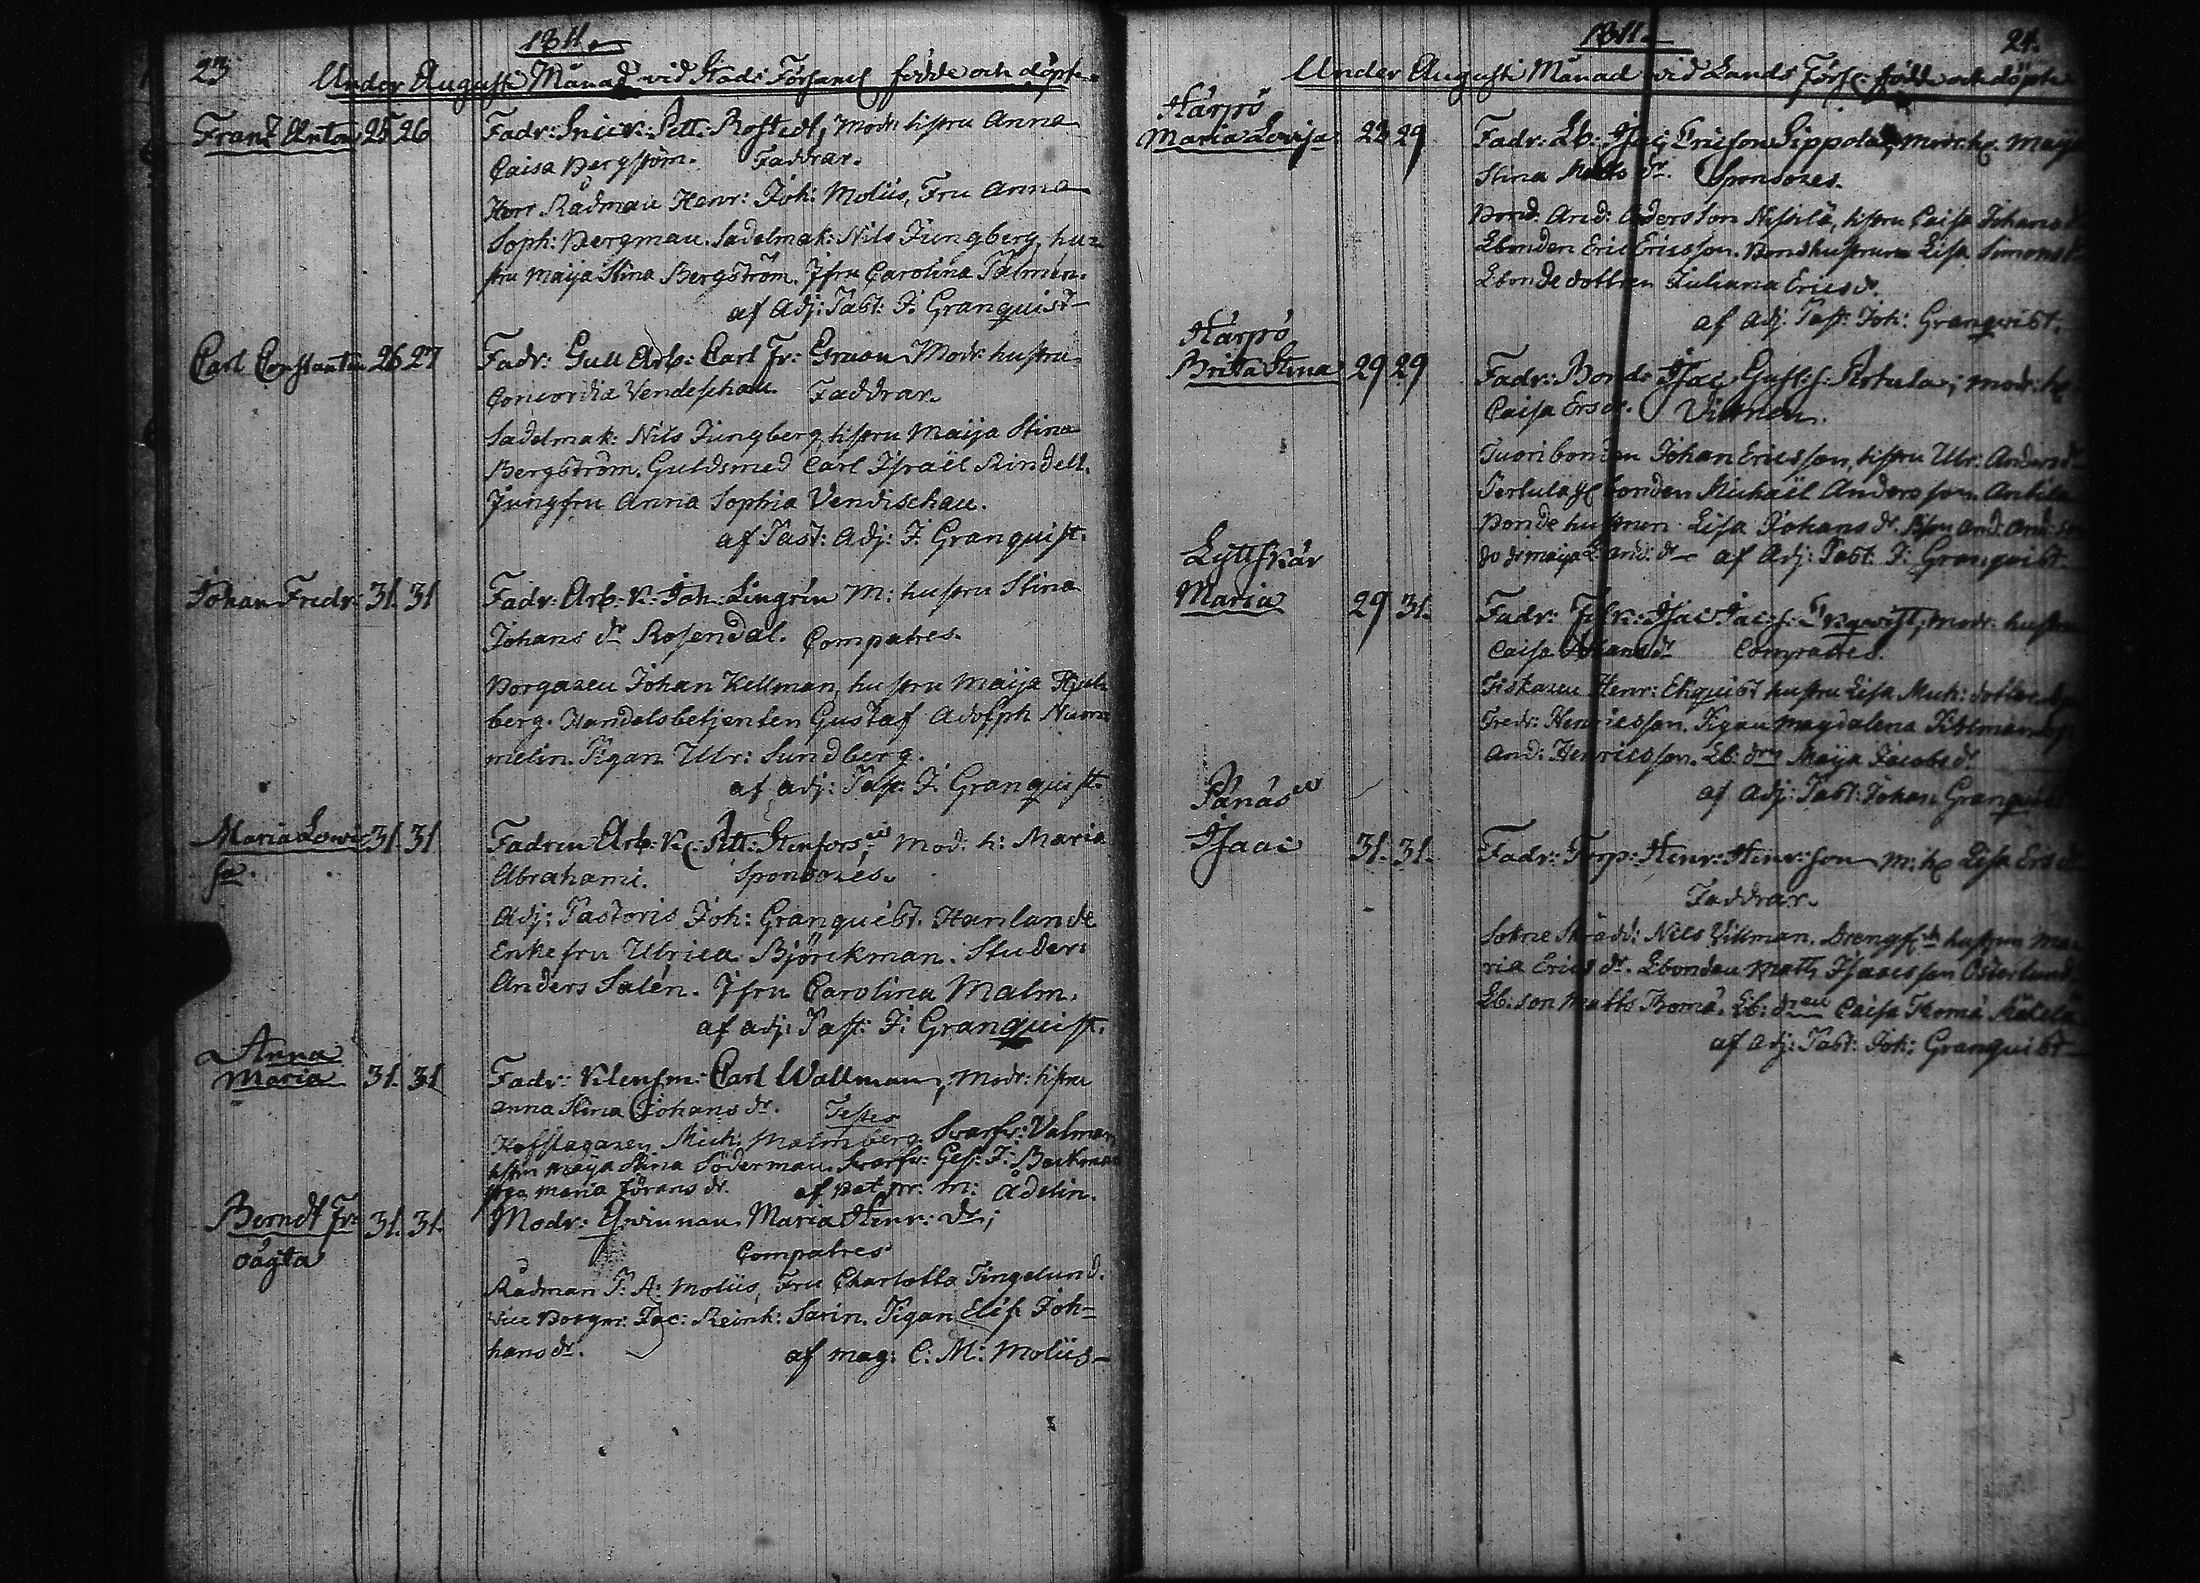 23
1811.
Under Augusti Månad vid Stads Förs. födde och döpte.
Franz Anton 25 26 Fadr: Snick: Pett: Rostedt, Modr: hustru Anna
Caisa Bergström. Faddrar.
Herr Rådman Henr: Joh: Moliis, Fru Anna
Soph: Bergman. Sadelmak: Nils Jungberg, hu-
stru Maija Stina Bergström. Jfru Carolina
af Adj: Past: J: Granquist
Carl Constantin 26 27 Fadr: Gull Arb: Carl Fr: Gruau Modr: hustru
Concordia Vendeschau. Faddrar.
Sadelmak: Nils Jungberg, hustru Maija Stina
Bergström. Guldsmed Carl Israël Rindell.
Jungfru Anna Sophia Vendischau.
af Past: Adj: J: Granquist.
Johan Fredr: 31. 31 Fadr: Arb: K: Joh: Lingrén M: hustru Stina
Johans dr Rosendal. Compatres.
Borgaren Johan Kellman, hustru Maija
berg. Handelsbetjenten Gustaf Adolph Num-
melin. Pigan Ulr: Sundberg.
af adj: Past: J. Granquist.
Maria Lovi- 31. 31 Fadren Arb: K: Pett: Stenfors; Mod: h: Maria
sa. Abrahami. Sponsores.
Adj: Pastoris Joh: Granquist. Handlande
Enkefru Ulrica Björckman. Studer:
Anders Salén. Jfru Carolina Malm.
af adj: Past: J: Granquist.
Anna
Maria 31. 31 Fadr: Klensm: Carl Wallman, Modr: hustru
Anna Stina Johans dr. Testes
Hofslagaren Mich: Malmberg. Svarfv: Valman
hustru Maija Stina Söderman. Svarfv: Ges: J: Backman
Maria Görans dr. af Bat: pr: M: Ådelin.
Berndt Fr: 31. 31. Modr: Qvinnan Maria Henr: dr;
oägta Compatres
Rådman J: H: Moliis, Fru Charlotta Tingelund.
Vice Borgm: Jac: Reinh: Sarin. Pigan Elis: Joh-
hans dr. af mag: C: M: Moliis
1811.
24.
Under Augusti Månad vid Lands Förs: födde och döpte
Härpö
Maria Lovisa 28 29 Fadr: Lb: Isac Ericson Sippola, modr: h. Maija
Stina Matts dr. Sponsores.
Bond. And: Andersson Nissilä, hustru Caisa Johans
Lbonden Eric Ericsson. Bondhustrun Lisa Simons
Lbondedottren Juliana Erics dr.
af Adj: Past: Joh: Granqvist.
Härpö
Britta Stina 29 29 Fadr: Bond: Isac Gust: s: Pertula; modr: h.
Caisa Ers dr. Vittnen.
Tuori bonden Johan Ericsson, hustru Ulr: Anders dr
Pertula bonden Michaël Andersson Anttila
Bondehustrun Lisa Johans dr. And: And: son
af Adj: Past: J: Granquist
Lyttskär
Maria 29 31. Fadr: Fisk: Isac Jac: s: Engqwist; modr: hustru
Caisa Johans dr Compatres.
Fiskaren Henr: Ekquist hustru Lisa Mich: dotter
Fredr: Henricsson. Pigan Magdalena
And: Henricsson. Lb: drn Maija Jacobs dr.
af Adj: Past: Johan Granquist
Pänäs
Isaac 31. 31. Fadr: Torp: Henr: Henr: son M: h. Lisa Ers dr
Faddrar.
Sokne Skrädd: Nils Villman. Drengs: hustrun Ma-
ria Erics dr. Lbonden Matts Isacsson Österlund
Lb: son Matts Thoma. Lb: dren Caisa Thoma Mäkelä
af Adj: Past: Joh: Granquist